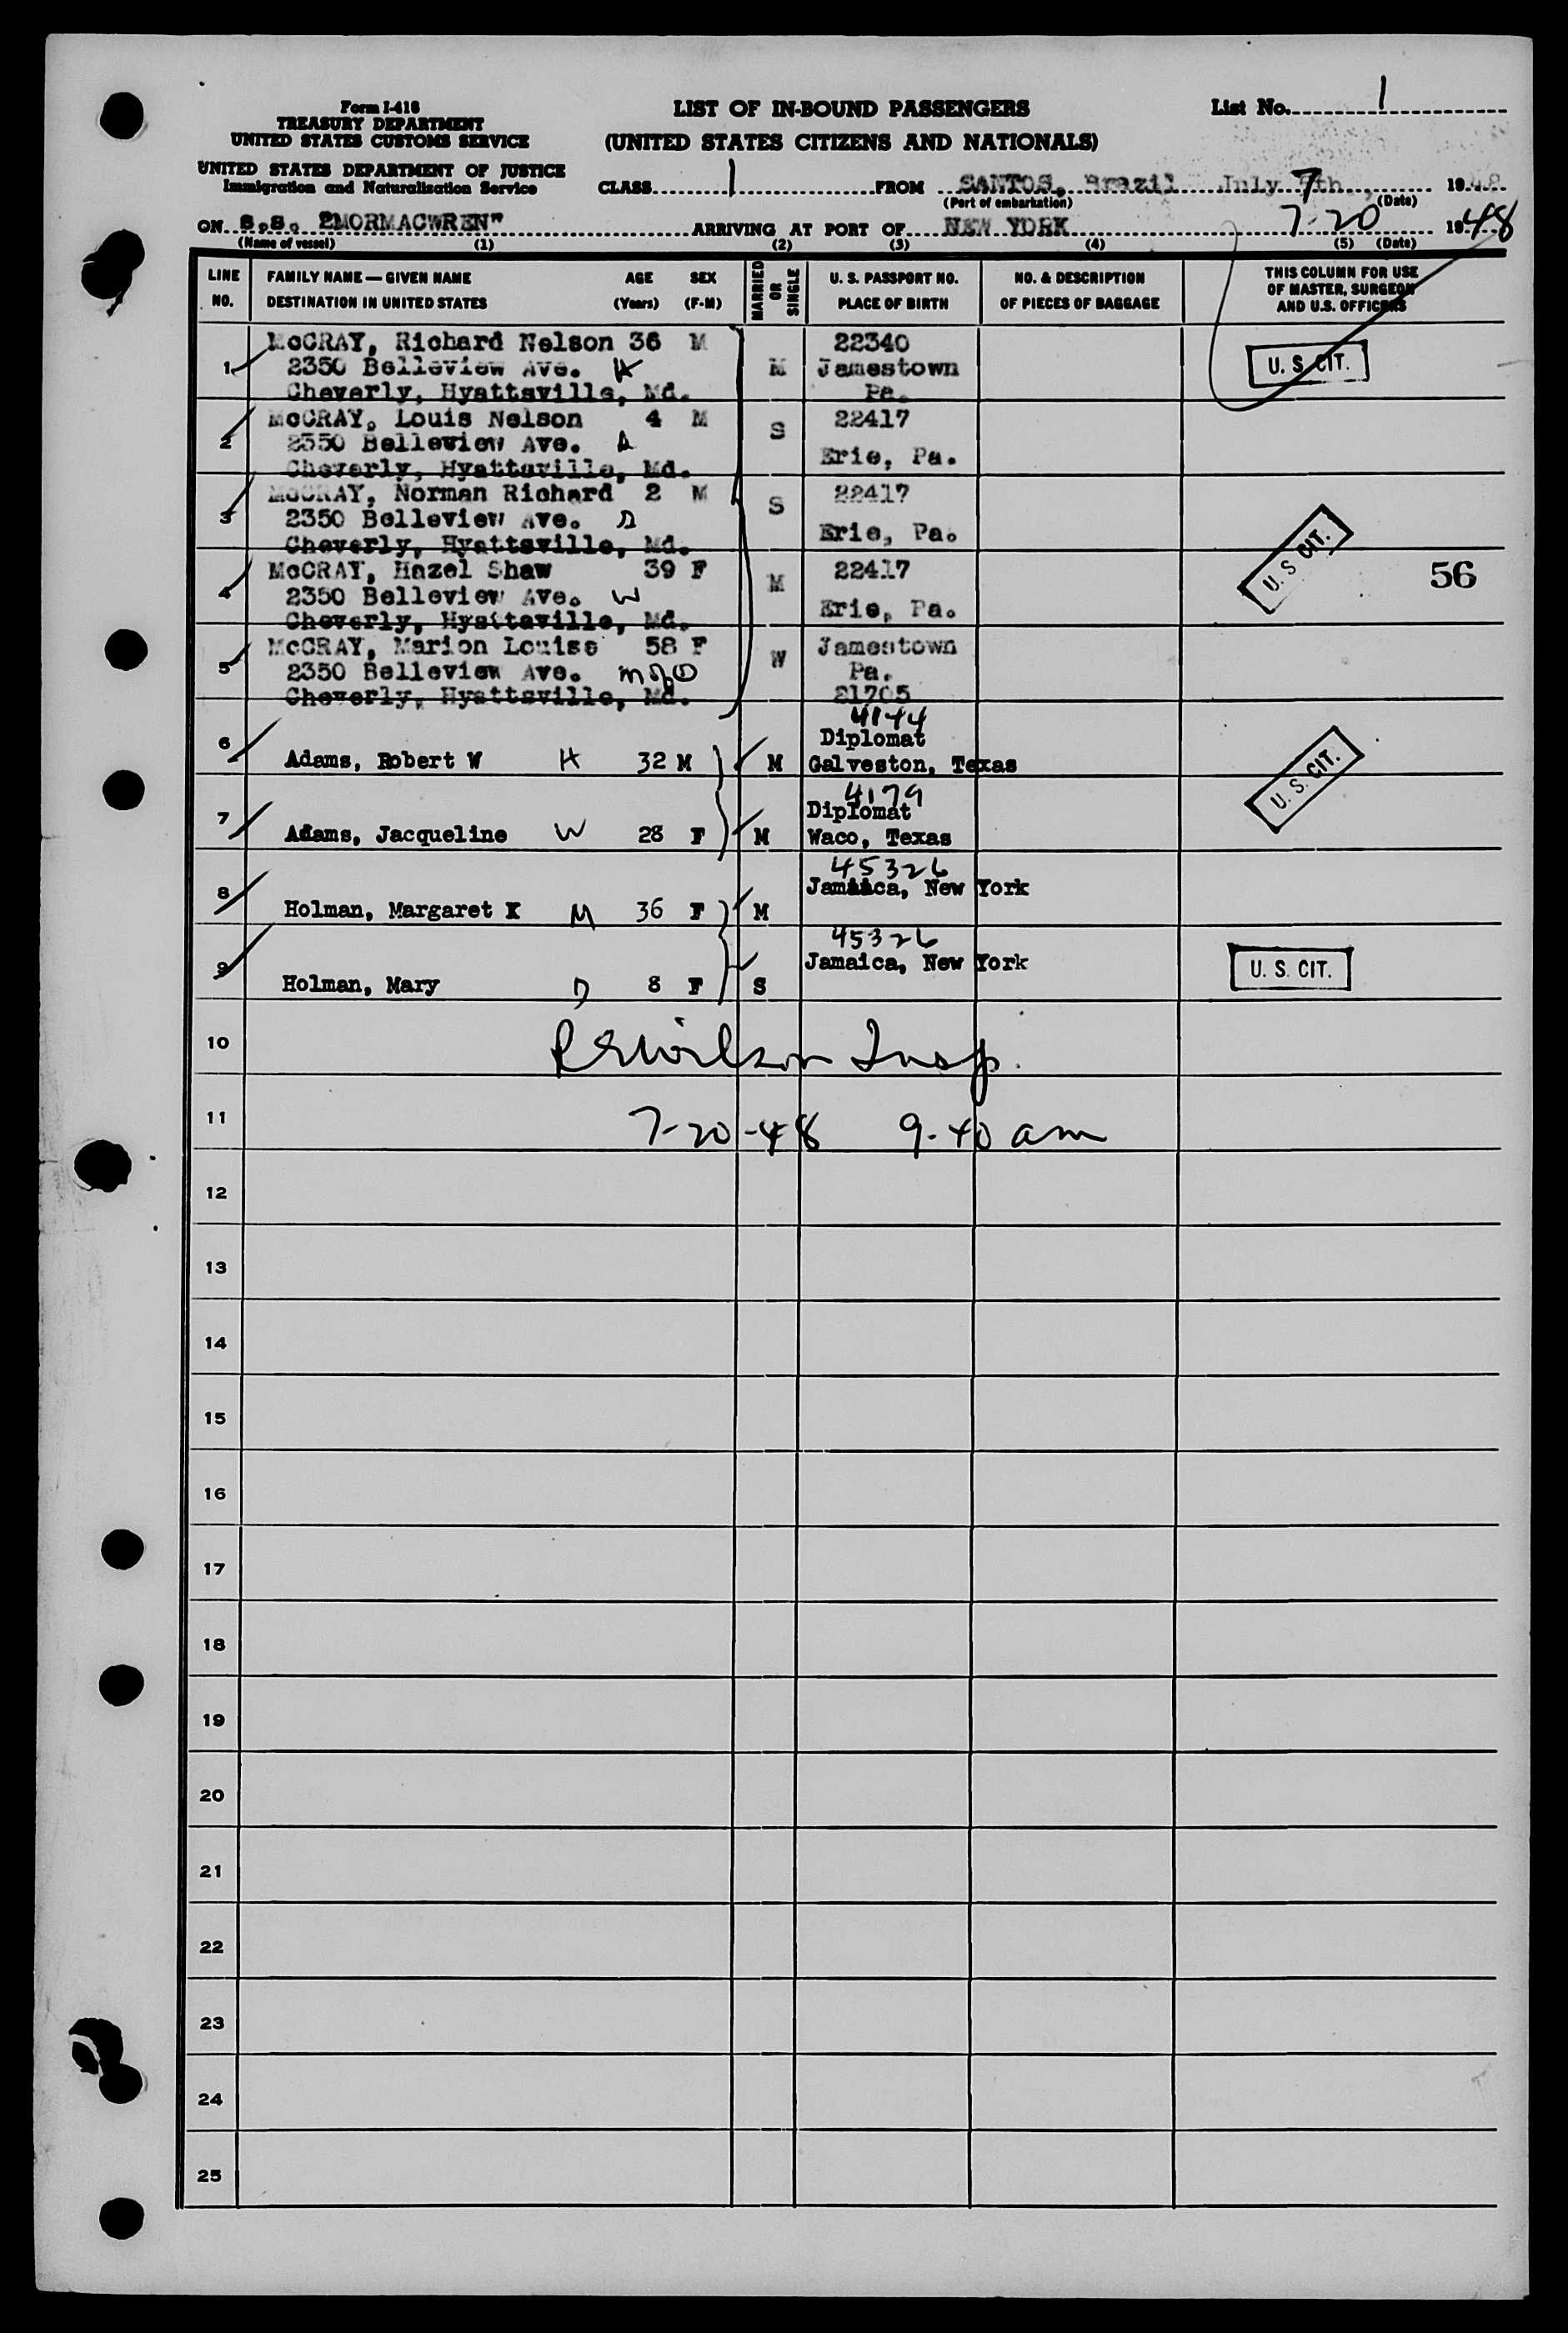 Form I-418
TREASURY DEPARTMENT
UNITED STATES CUSTOMS SERVICE
UNITED STATES DEPARTMENT OF JUSTICE
Immigration and Naturalization Service
LIST OF IN-BOUND PASSENGERS
(UNITED STATES CITIZENS AND NATIONALS)
List No. 1
CLASS 1 FROM SANTOS, Brazil July 7th, 1948
(Port of embarkation) (Date)
ON s.s. "MORMACWREN" ARRIVING AT PORT OF NEW YORK 7-20 1948
(Name of vessel) (1) (2) (3) (4) (5) (Date)
LINE NO. FAMILY NAME — GIVEN NAME DESTINATION IN UNITED STATES AGE (Years) SEX (F-M) MARRIED OR SINGLE U. S. PASSPORT NO. PLACE OF BIRTH NO. & DESCRIPTION OF PIECES OF BAGGAGE THIS COLUMN FOR USE OF MASTER, SURGEON AND U.S. OFFICERS
1 McCRAY, Richard Nelson 36 M M 22340
2350 Belleview Ave. H Jamestown U. S. CIT.
Cheverly, Hyattsville, Md. Pa.
2 McCRAY, Louis Nelson 4 M S 22417
2350 Belleview Ave. Erie, Pa.
Cheverly, Hyattsville, Md.
3 McCRAY, Norman Richard 2 M S 22417
2350 Belleview Ave. Erie, Pa.
Cheverly, Hyattsville, Md.
4 McCRAY, Hazel Shaw 39 F M 22417 U. S CIT. 56
2350 Belleview Ave. W Erie, Pa.
Cheverly, Hyattsville, Md.
5 McCRAY, Marion Louise 58 F W Jamestown
2350 Belleview Ave. Pa.
Cheverly, Hyattsville, Md. 21705
4144
6 Diplomat
Adams, Robert W H 32 M M Galveston, Texas U. S. CIT.
4179
7 Diplomat
Adams, Jacqueline W 28 F M Waco, Texas
45326
8 Jamaica, New York
Holman, Margaret K M 36 F M
45326
9 Jamaica, New York U. S. CIT.
Holman, Mary D 8 F S
10 Wilson Insp.
11 7-20-48 9-40 am
12
13
14
15
16
17
18
19
20
21
22
23
24
25